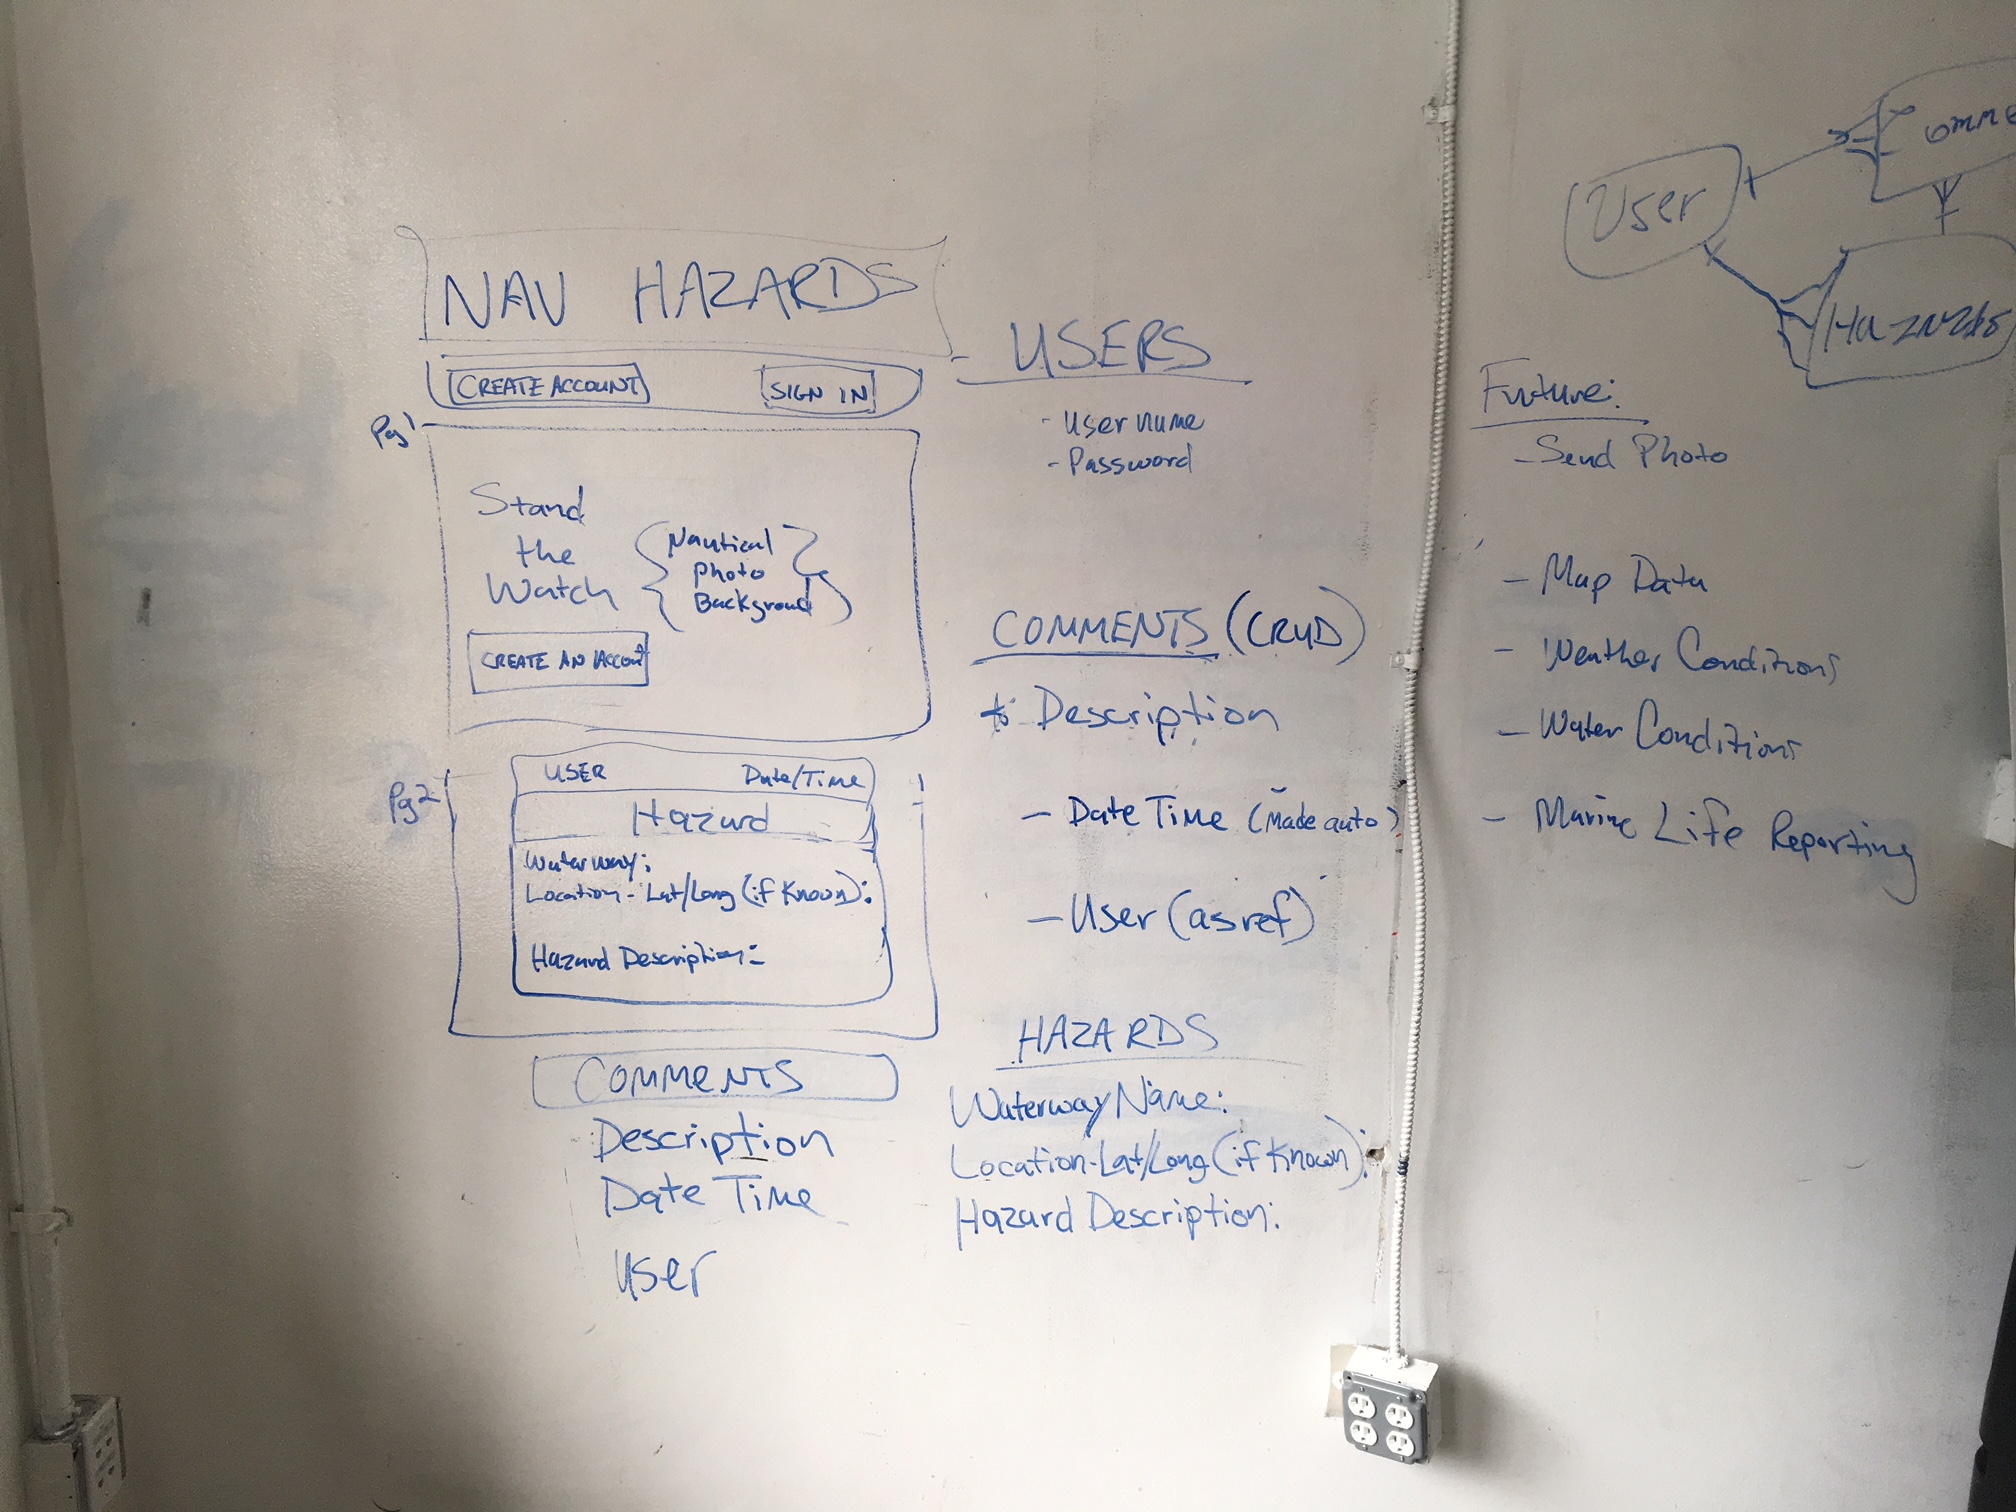 NAV HAZARDS
CREATE ACCOUNT
SIGN IN
Pg 1
Stand
the
Watch
Nautical
Photo
Background
CREATE AN ACCOUNT
Pg 2
USER
Date/Time
Hazard
Waterway:
Location - Lat/Long (if Known):
Hazard Description:
COMMENTS
Description
Date Time
User
USERS
- User name
- Password
COMMENTS (CRUD)
Description
- Date Time (made auto)
- User (as ref)
HAZARDS
Waterway Name:
Location-Lat/Long (if Known):
Hazard Description:
User
Comme
Hazards
Future:
- Send Photo
- Map Data
- Weather Conditions
- Water Conditions
- Marine Life Reporting